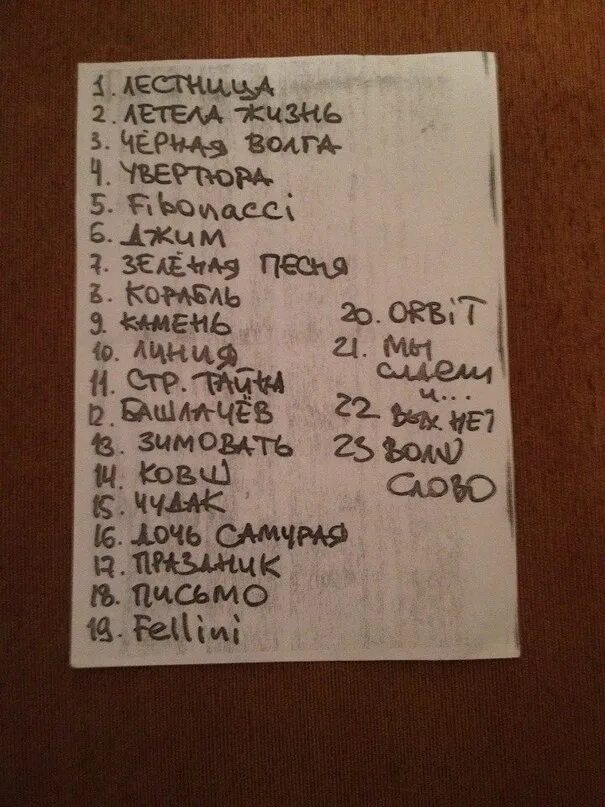 1. ЛЕСТНИЦА
2. ЛЕТЕЛА ЖИЗНЬ
3. ЧЁРНАЯ ВОЛГА
4. УВЕРТЮРА
5. Fibonacci
6. ДЖИМ
7. ЗЕЛЁНАЯ ПЕСНЯ
8. КОРАБЛЬ
9. КАМЕНЬ
10. ЛИНИЯ
11. СТР. ТАЙНА
12. БАШЛАЧЁВ
13. ЗИМОВАТЬ
14. КОВШ
15. ЧУДАК
16. ДОЧЬ САМУРАЯ
17. ПРАЗДНИК
18. ПИСЬМО
19. Fellini
20. ORBiT
21. МЫ
СИДЕЛИ
И...
22 ВЫХ. НЕТ
23
СЛОВО